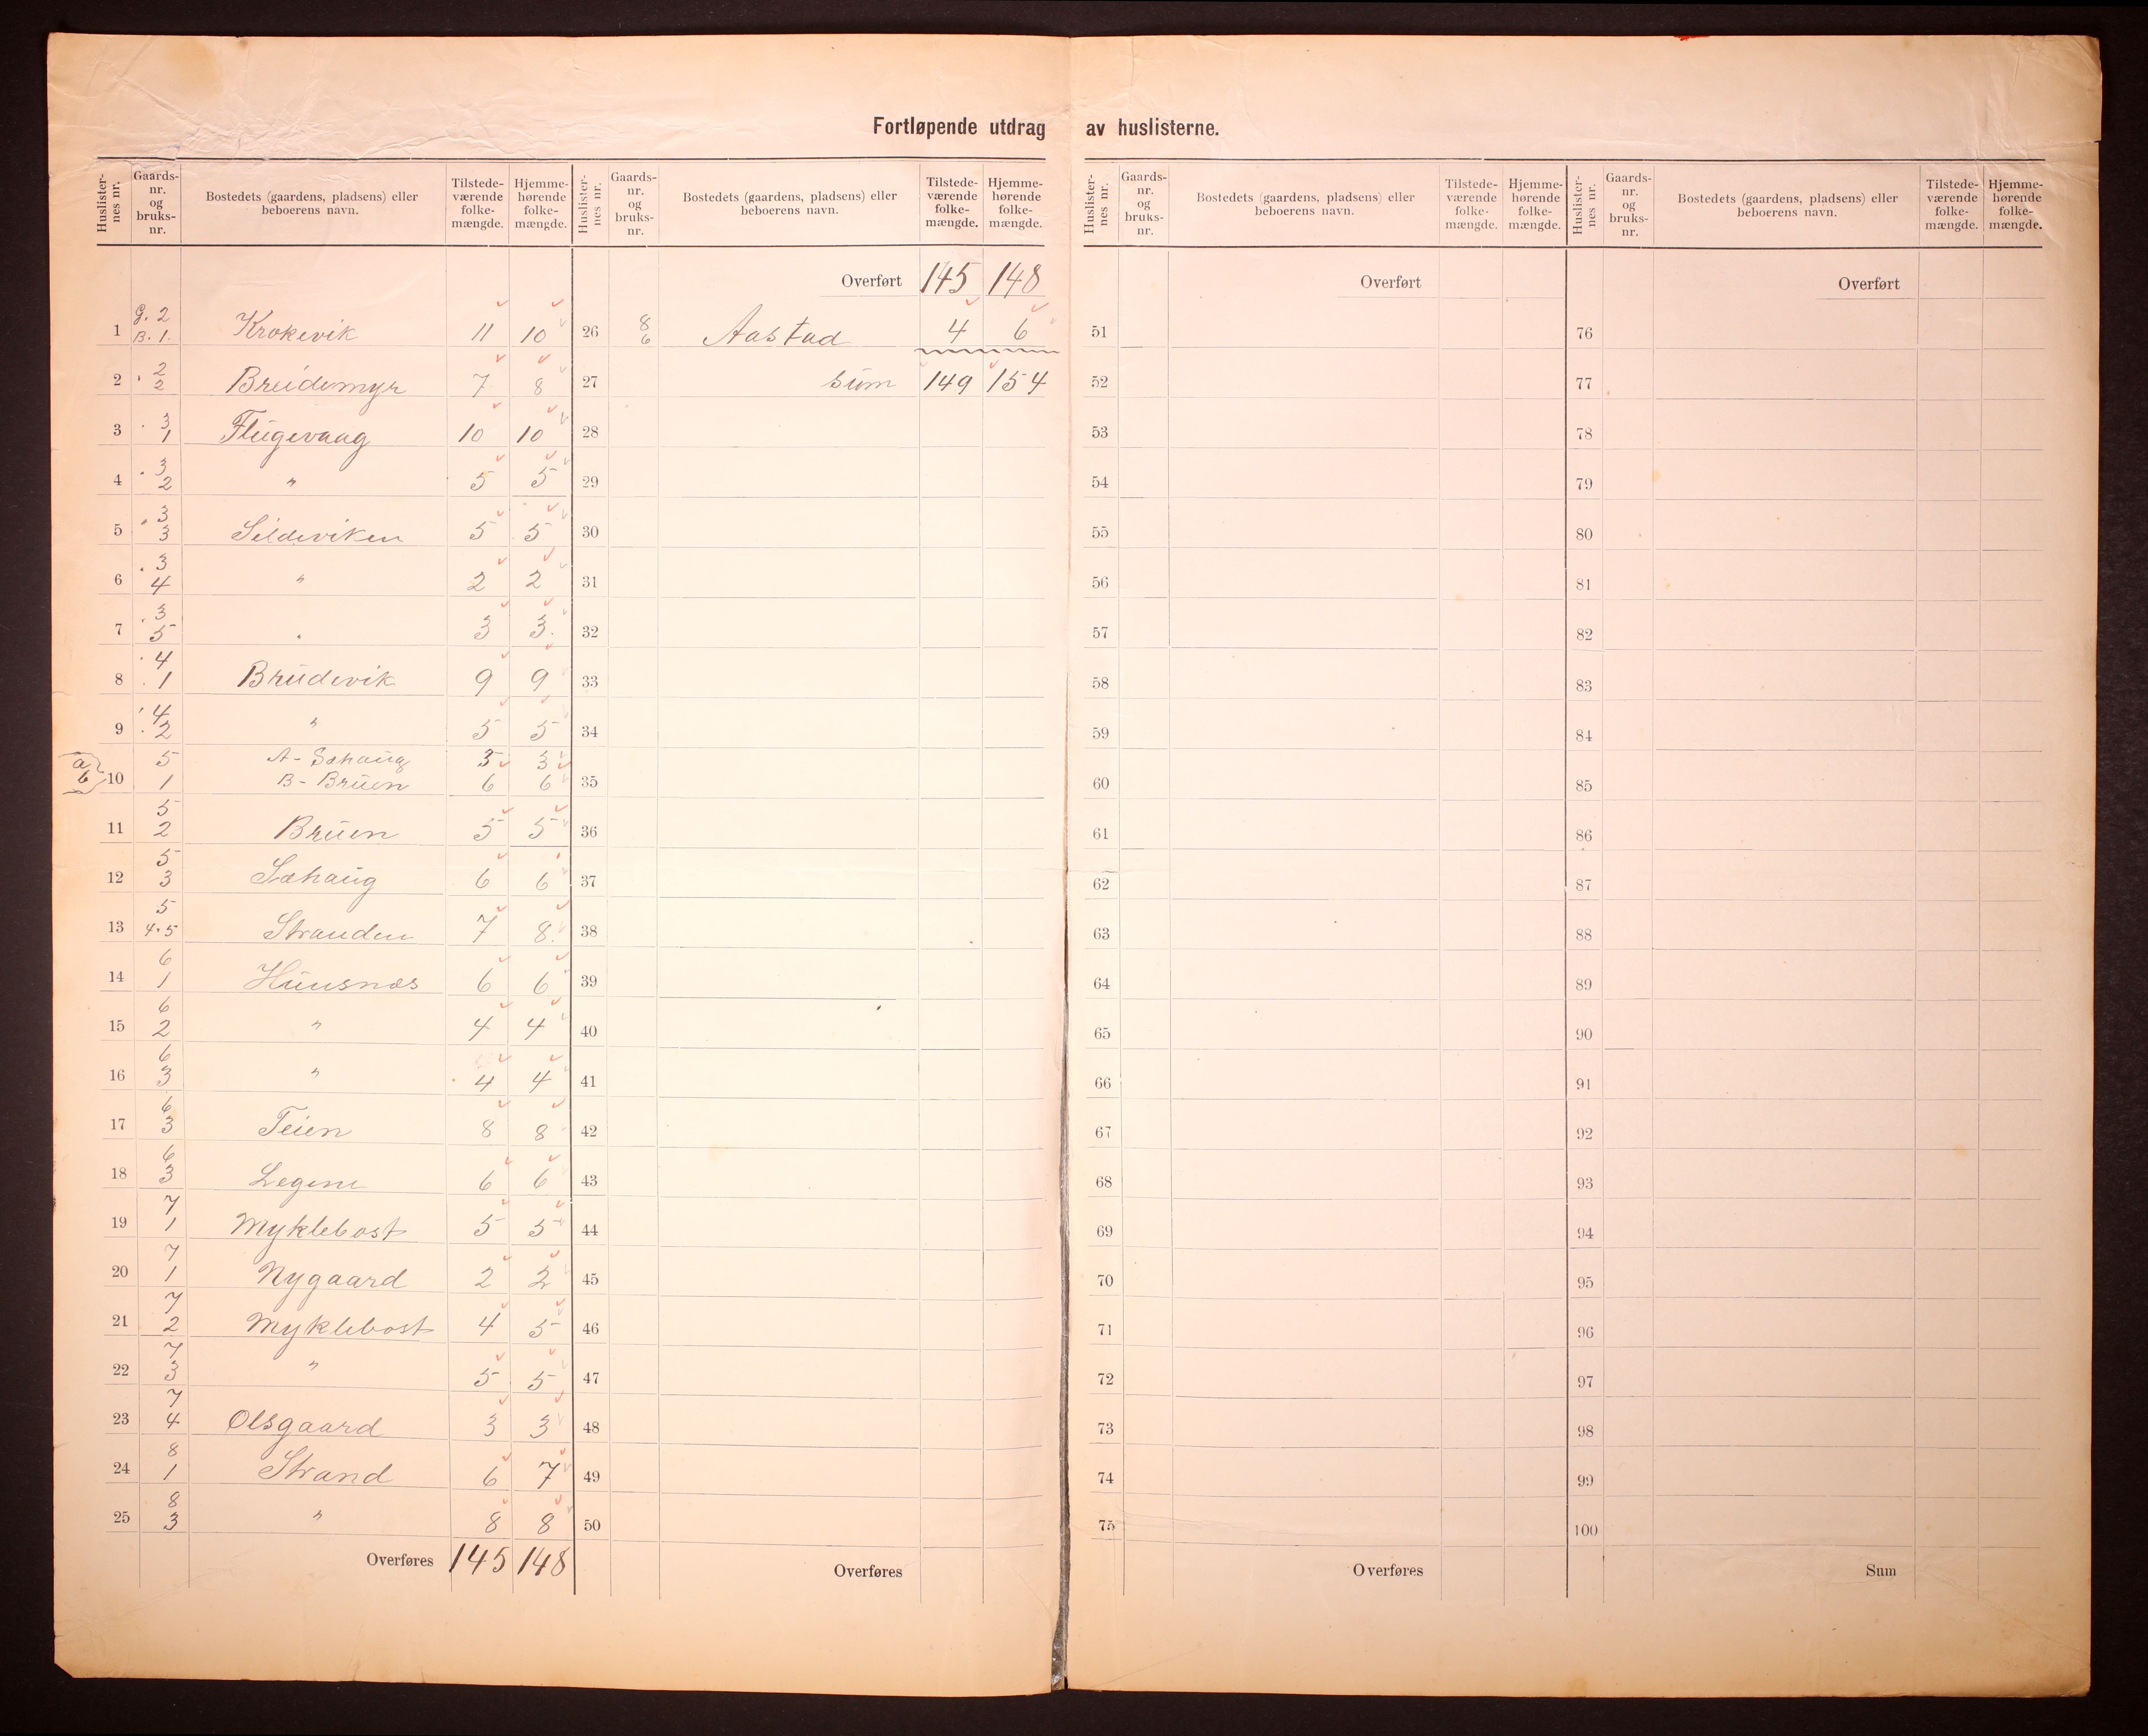 Fortløpende utdrag av huslisterne.
Huslister-nes nr. Gaards-nr. og bruks-nr. Bostedets (gaardens, pladsens) eller beboerens navn. Tilstede-værende folke-mængde. Hjemme-hørende folke-mængde.
1 G. 2 B. 1. Krokevik 11 10
2 2 2 Breidemyr 7 8
3 3 1 Flugevaag 10 10
4 3 2 " 5 5
5 3 3 Sildeviken 5 5
6 3 4 " 2 2
7 3 5 " 3 3
8 4 1 Brudevik 9 9
9 4 2 " 5 5
a b 10 5 1 A - Sæhaug 3 3
B - Bruen 6 6
11 5 2 Bruen 5 5
12 5 3 Sæhaug 6 6
13 5 4.5 Stranden 7 8
14 6 1 Huusnæs 6 6
15 6 2 " 4 4
16 6 3 " 4 4
17 6 3 Teien 8 8
18 6 3 Legene 6 6
19 7 1 Myklebost 5 5
20 7 1 Nygaard 2 2
21 7 2 Myklebost 4 5
22 7 3 " 5 5
23 7 4 Olsgaard 3 3
24 8 1 Strand 6 7
25 8 3 " 8 8
Overføres 145 148
Huslister-nes nr. Gaards-nr. og bruks-nr. Bostedets (gaardens, pladsens) eller beboerens navn. Tilstede-værende folke-mængde. Hjemme-hørende folke-mængde.
Overført 145 148
26 8 6 Aastad 4 6
27 sum 149 154
28
29
30
31
32
33
34
35
36
37
38
39
40
41
42
43
44
45
46
47
48
49
50
Overføres
Huslister-nes nr. Gaards-nr. og bruks-nr. Bostedets (gaardens, pladsens) eller beboerens navn. Tilstede-værende folke-mængde. Hjemme-hørende folke-mængde.
Overført
51
52
53
54
55
56
57
58
59
60
61
62
63
64
65
66
67
68
69
70
71
72
73
74
75
Overføres
Huslister-nes nr. Gaards-nr. og bruks-nr. Bostedets (gaardens, pladsens) eller beboerens navn. Tilstede-værende folke-mængde. Hjemme-hørende folke-mængde.
Overført
76
77
78
79
80
81
82
83
84
85
86
87
88
89
90
91
92
93
94
95
96
97
98
99
100
Sum